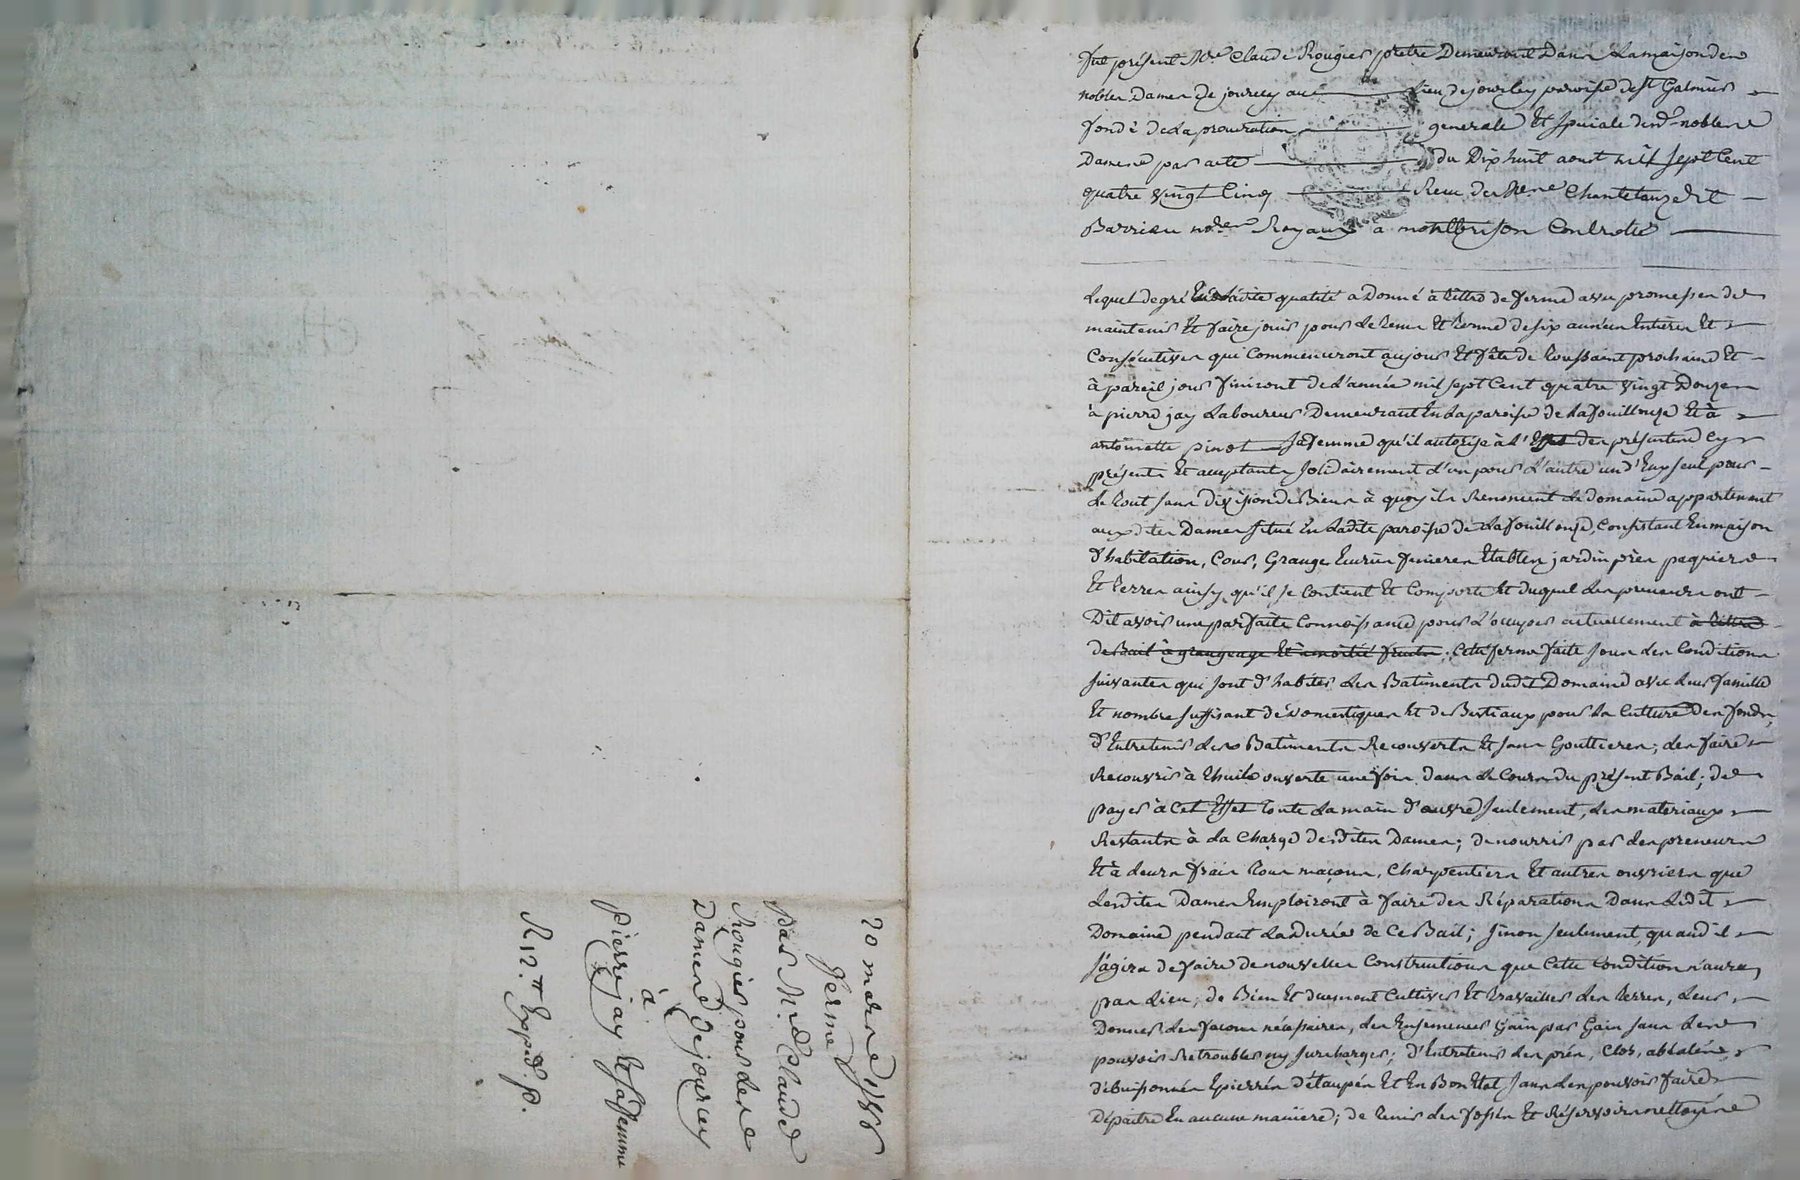 20 mars 1786
ferme
par Mre Claude
Rougier pour les
Dames de jourcey
à
Pierre jay et sa femme
R 12.tt Exped. p.
fut présent Mre Claude Rougier prêtre Demeurant Dans La maison des
nobles Dames De jourcey au lieu de jourcey paroisse de st Galmier
fondé De La procuration generale Et speciale desd. nobles
Dames par acte du Dix huit aout mil sept Cent
quatre vingt Cinq Recu des Mres Chantelauze dit
Barrieu nores Royaux a montbrison Controllé
Lequel de gré En Ladite qualité a Donné à tittre de ferme avec promesse de
maintenir Et faire jouir pour Le tems Et terme de six années Entieres Et
Consécutives qui Commenceront au jour Et fête de toussaint prochaine Et
à pareil jour finiront de L'année mil sept Cent quatre vingt Douze
à pierre jay Laboureur Demeurant En La paroisse de La fouillouse Et à
antoinette pinot sa femme qu'il autorise à L'Effet des présentes Cy
présents Et acceptants solidairement L'un pour L'autre un d'Eux seul pour
Le tout sans division de Biens à quoy ils Renoncent Le domaine appartenant
auxdites Dames situé En Ladite paroisse de La fouillouse, Consistant En maison
d'habitation, Cour, Grange Ecuries fenieres Etables jardin près paquiers
Et terres ainsy qu'il se Contient Et Comporte Et duquel Les preneurs ont
Dit avoir une parfaite Connoissance pour L'occuper actuellement à tittre
de Bail à grangeage Et à moitié fruits; Cette ferme faite sous Les Conditions
suivantes qui sont d'habiter Les Batiments dudit Domaine avec Leur famille
Et nombre suffisant de Domestiques Et de Bestiaux pour La Culture Des fonds,
d'Entretenir Les Batiments Recouverts Et sans Gouttieres; de Les faire
Recouvrir à thuile ouverte une fois dans Le Cours du présent Bail; de
payer à Cet Effet toute La main d'œuvre seulement, Les materiaux
Restants à La Charge desdites Dames; de nourrir par Les preneurs
Et à Leurs frais tous maçons, Charpentiers Et autres ouvriers que
Lesdites Dames Emploiront à faire des Réparations Dans Ledit
Domaine pendant La durée de Ce Bail; sinon seulement quand il
s'agira de faire de nouvelles Constructions que Cette Condition n'aura
pas Lieu; de Bien Et duement Cultiver Et travailler Les terres, Leur
Donner Les façons nécessaires, Les Ensemencer Gain par Gain sans Les
pouvoir Retroubler ny surcharger; d'Entretenir Les prés, Clos,
débuissonnés Epierrés détaupés Et En Bon Etat sans Les pouvoir faire
Dépaitre En aucune maniere; de tenir Les fossés Et Réservoirs nettoyés